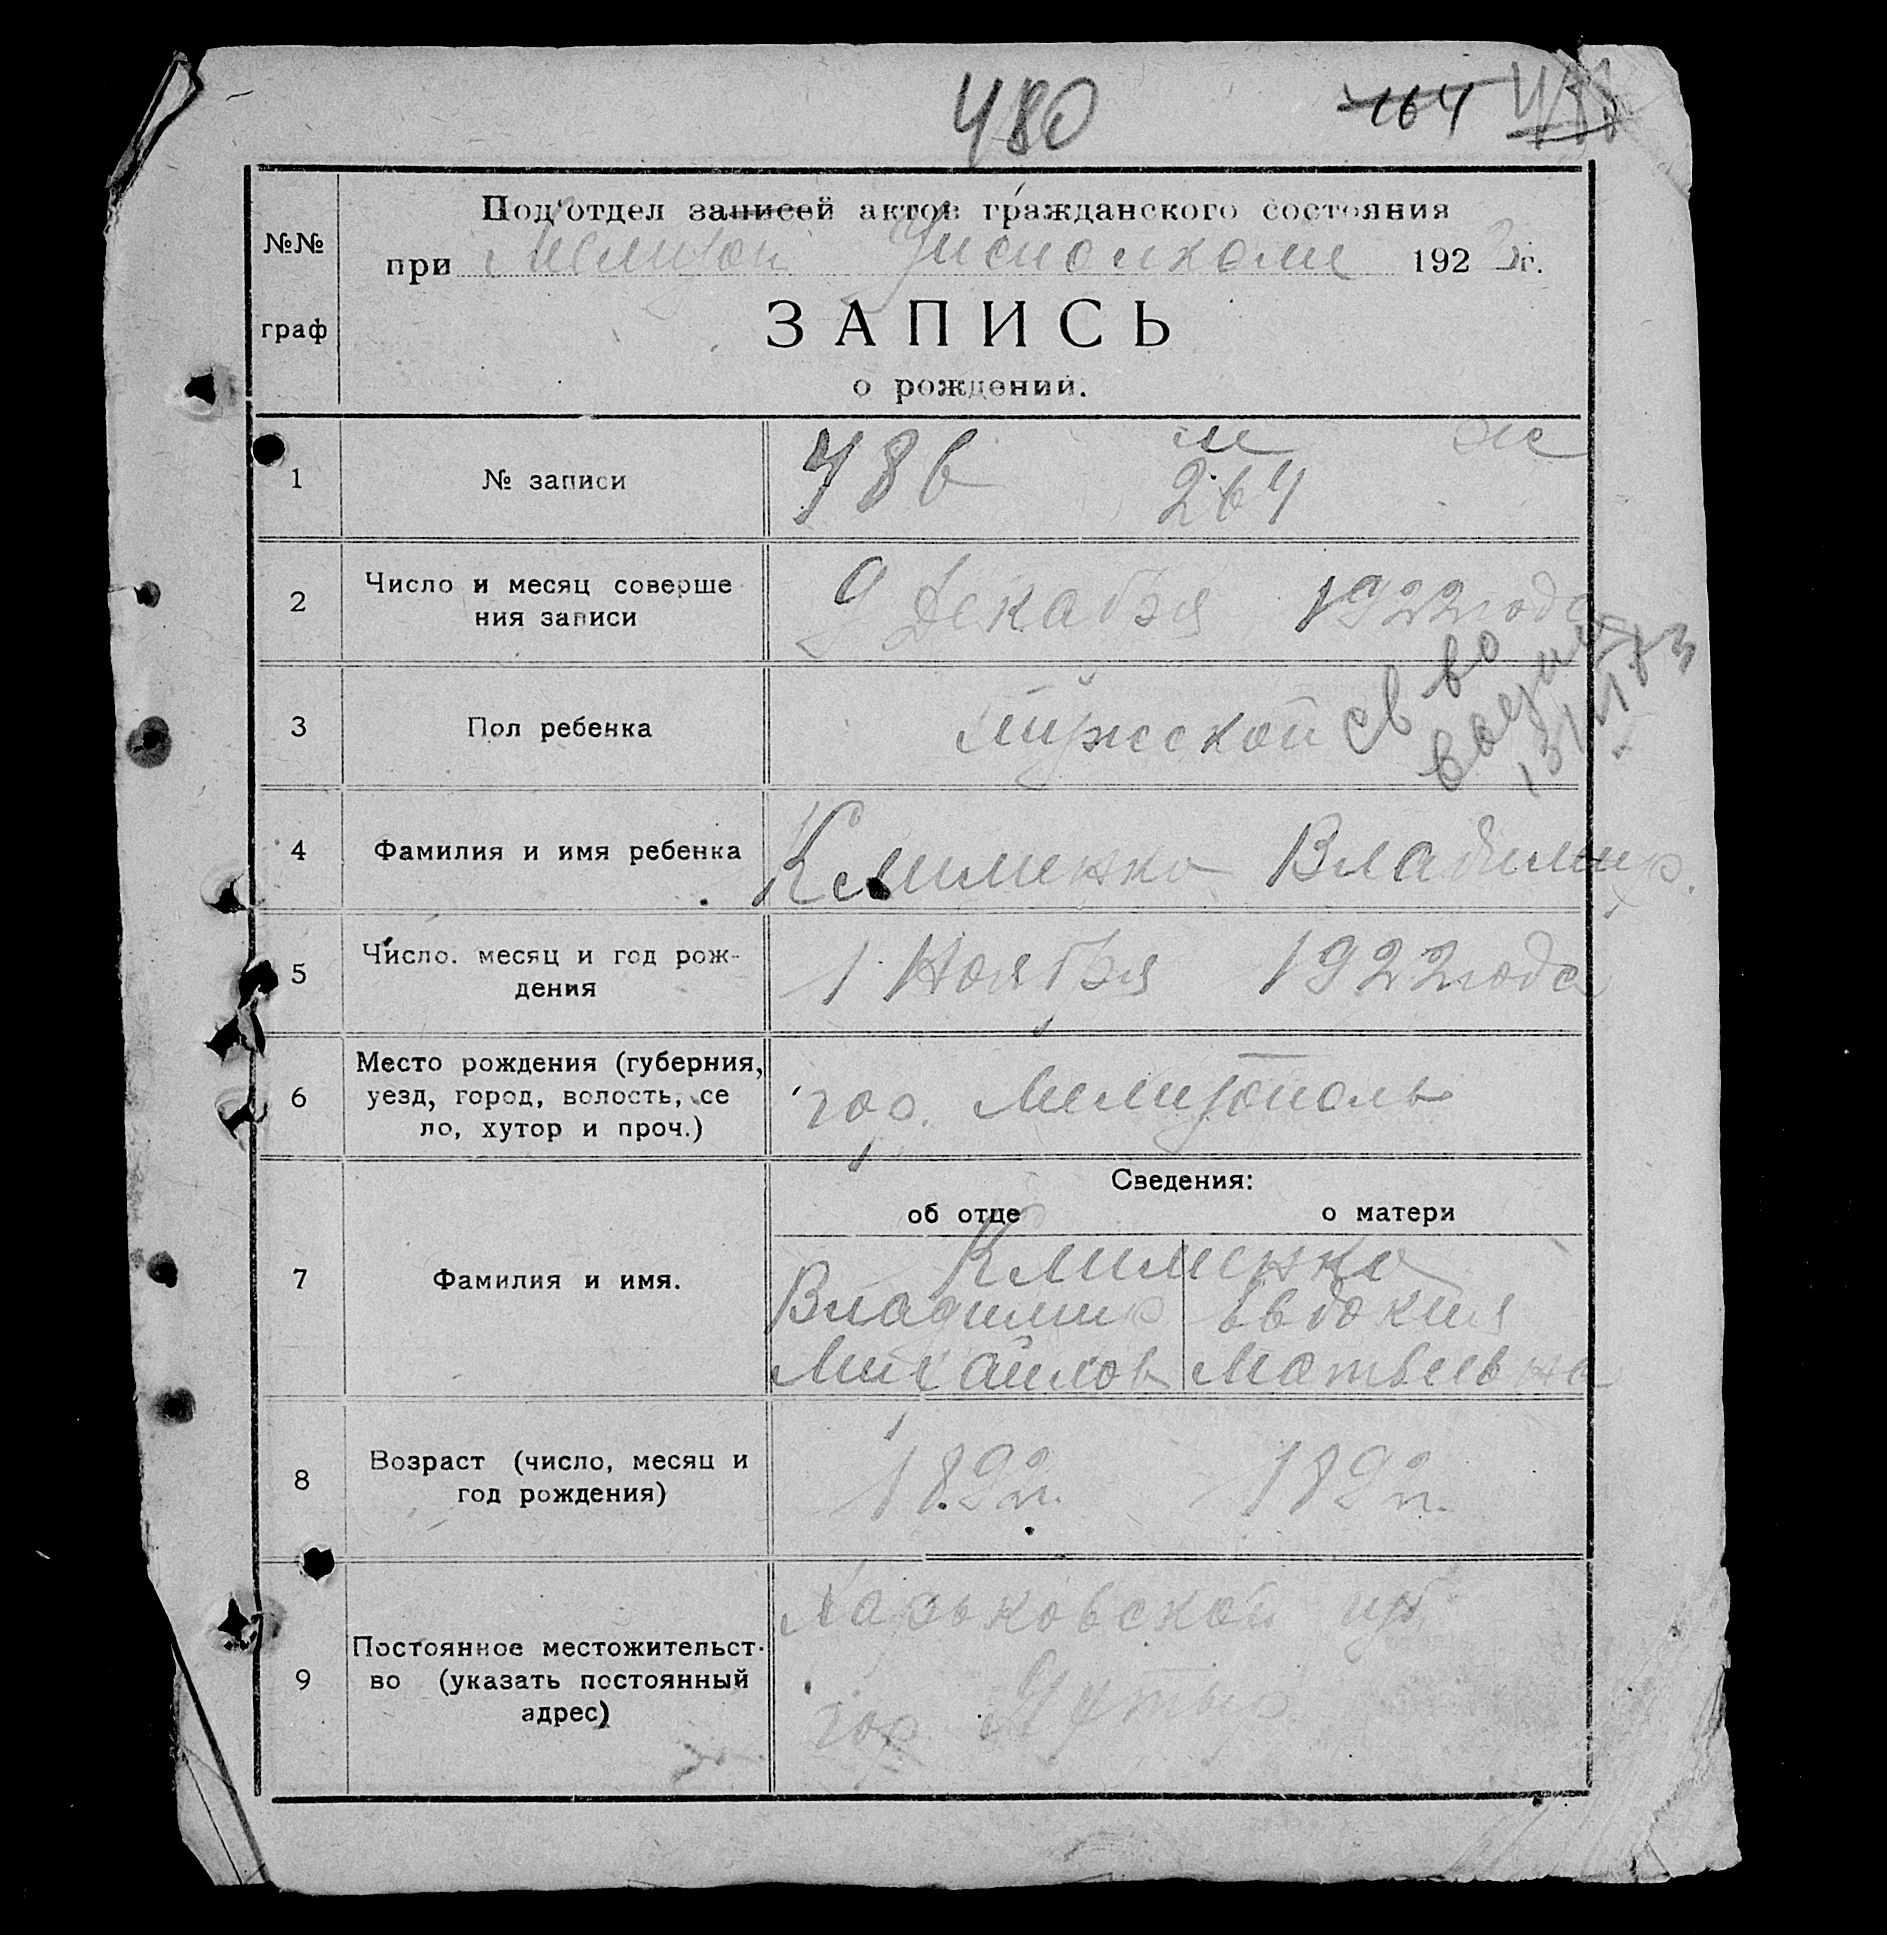 480 164
Под'отдел записей актов гражданского состояния
№№
при Мелитоп Уисполкоме 1923 г.
граф
ЗАПИСЬ
о рождении.
м ж
1 № записи 486 264
2 Число и месяц соверше
ния записи
9 Декабря 1922 года
св во
3 Пол ребенка Мужской
4 Фамилия и имя ребенка Клименко Владимир.
5 Число. месяц и год рож-
дения
1 Ноября 1922 года
6 Место рождения (губерния,
уезд, город, волость, се
ло, хутор и проч.)
гор. Мелитополь
Сведения:
об отце о матери
7 Фамилия и имя.
Клименко
Владимир Евдокия
Михайлов Матвеевна
8 Возраст (число, месяц и
год рождения)
1892 г. 1892 г.
9 Постоянное местожительст-
во (указать постоянный
адрес)
Харьковской губ.
гор.